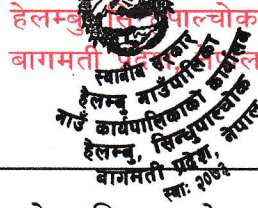 हेलम्बु, सिन्धुपाल्चोक
बागमती प्रदेश, नेपाल
स्थानीय सरकार
हेलम्बु गाउँपालिका
गाउँ कार्यपालिकाको कार्यालय
हेलम्बु, सिन्धुपाल्चोक
बागमती प्रदेश, नेपाल
स्था: २०७३